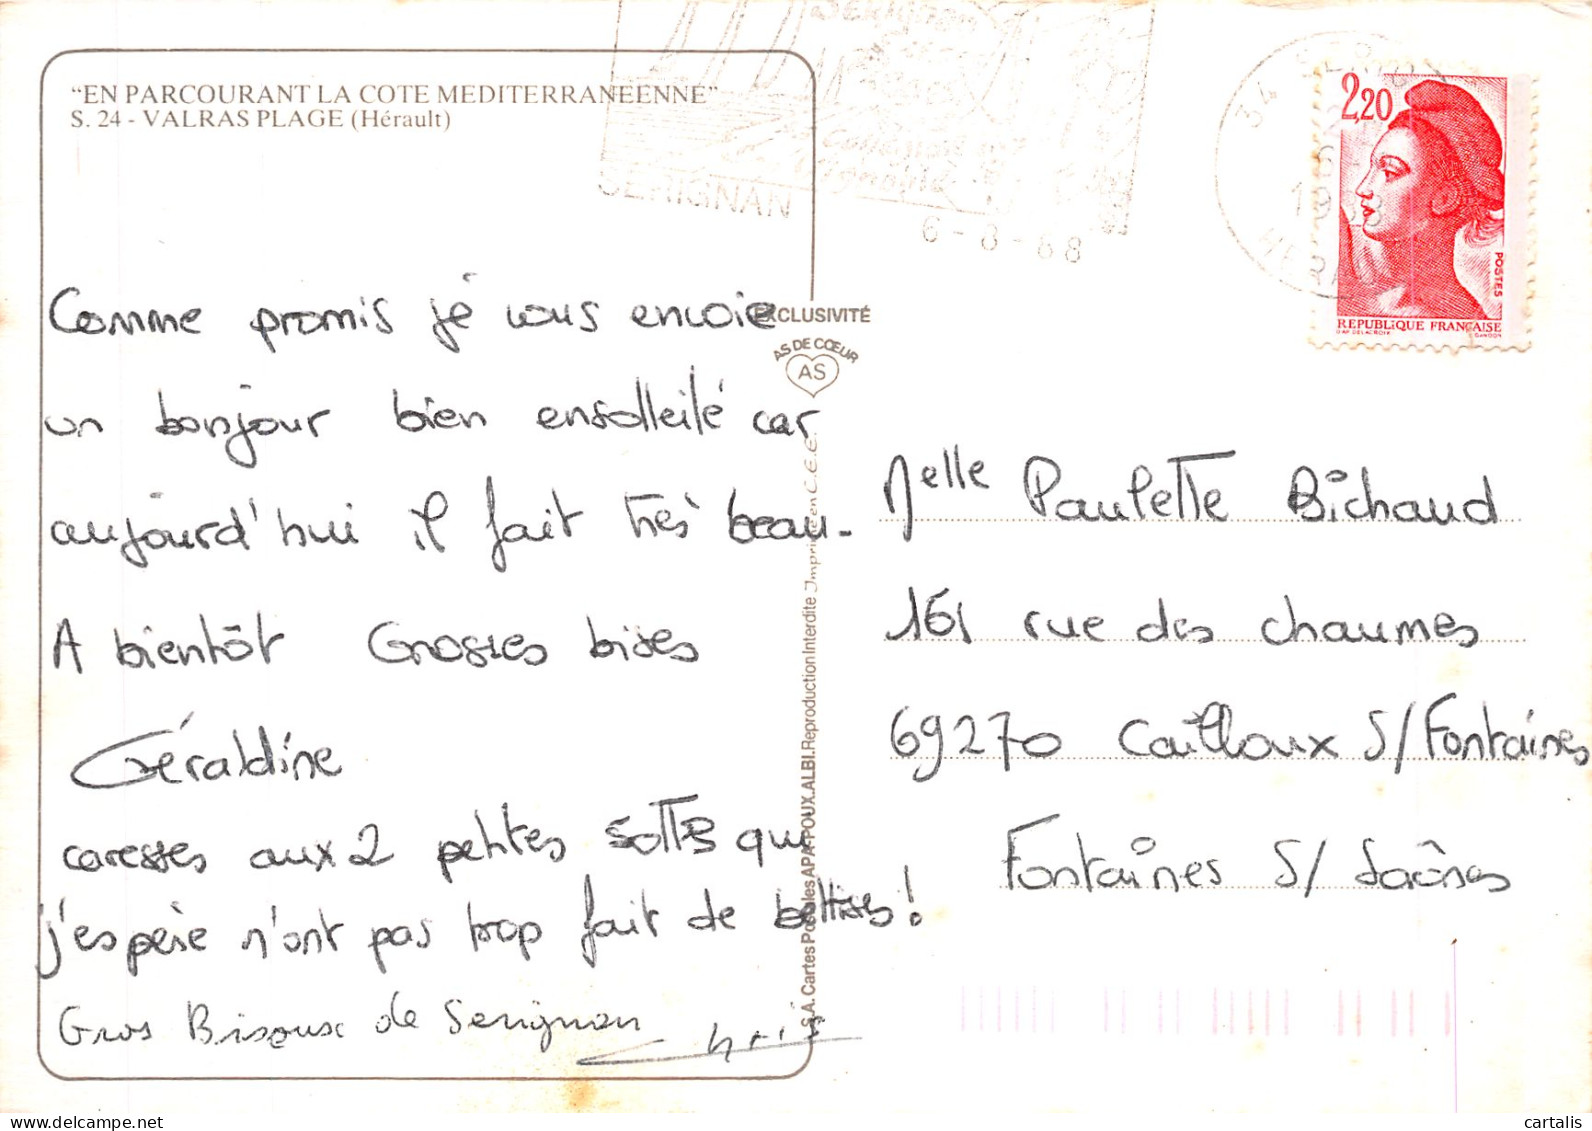 "EN PARCOURANT LA COTE MEDITERRANEENNE"
S. 24 - VALRAS PLAGE (Hérault)
Sérignan
SERIGNAN
6-8-88
34
HERA
2,20
POSTES
REPUBLIQUE FRANÇAISE
D'AP. DELACROIX
GANDON
EXCLUSIVITÉ
AS DE CŒUR
AS
S.A. Cartes Postales APA-POUX. ALBI. Reproduction Interdite Imprimé en C.E.E.
Comme promis je vous envoie
un bonjour bien ensolleilé car
aujourd'hui il fait très beau-
A bientôt Grosses bises
Géraldine
caresses aux 2 petites sottes qui
j'espère n'ont pas trop fait de bêttises!
Gros Bisoux de Serignan
Chris
Melle Paulette Bichaud
161 rue des chaumes
69270 Cailloux S/Fontaines
Fontaines S/ Saônes
cartalis
www.delcampe.net